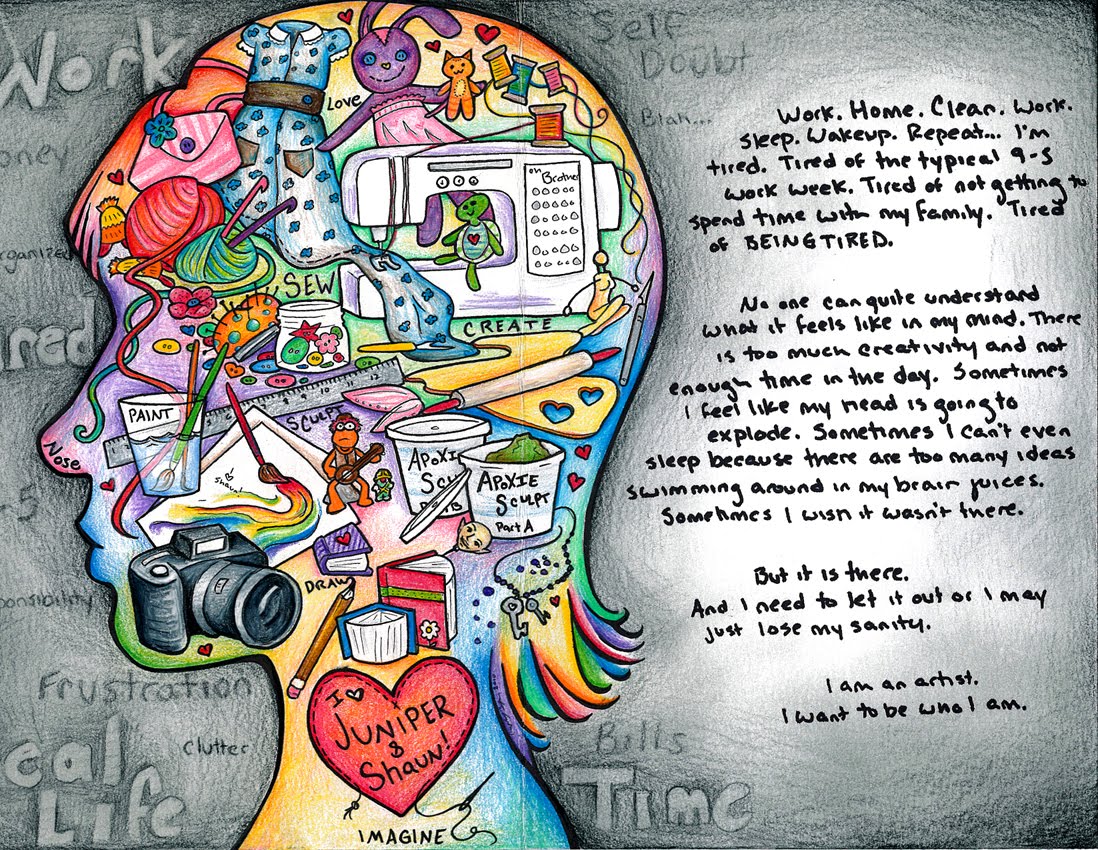 Work
Self
Doubt
Blah...
oney
rganized
red
-5
onsibility
Frustration
Clutter
eal
Life
Bills
Time
Love
on Brother
SEW
CREATE
PAINT
Nose
SCULPT
Shaun!
APOXIE
SCULPT
Part A
DRAW
I ♥
JUNIPER
&
Shaun!
IMAGINE
Work. Home. Clean. Work.
sleep. Wakeup. Repeat... I'm
tired. Tired of the typical 9-5
work week. Tired of not getting to
spend time with my family. Tired
of BEING TIRED.
No one can quite understand
what it feels like in my mind. There
is too much creativity and not
enough time in the day. Sometimes
I feel like my head is going to
explode. Sometimes I can't even
sleep because there are too many ideas
swimming around in my brain juices.
Sometimes I wish it wasn't there.
But it is there.
And I need to let it out or I may
just lose my sanity.
I am an artist.
I want to be who I am.